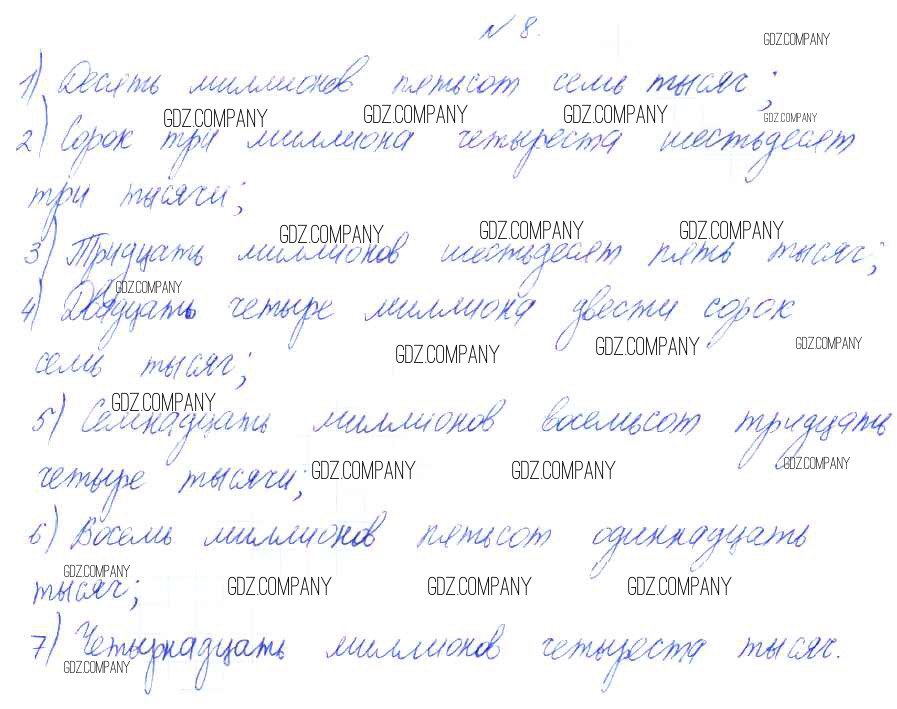 № 8.
GDZ.COMPANY
1) Десять миллионов пятьсот семь тысяч;
GDZ.COMPANY GDZ.COMPANY GDZ.COMPANY GDZ.COMPANY
2) Сорок три миллиона четыреста шестьдесят
три тысячи;
GDZ.COMPANY GDZ.COMPANY GDZ.COMPANY
3) Тридцать миллионов шестьдесят пять тысяч;
GDZ.COMPANY
4) Двадцать четыре миллиона двести сорок
GDZ.COMPANY GDZ.COMPANY GDZ.COMPANY
семь тысяч;
GDZ.COMPANY
5) Семнадцать миллионов восемьсот тридцать
GDZ.COMPANY GDZ.COMPANY GDZ.COMPANY
четыре тысячи;
6) Восемь миллионов пятьсот одиннадцать
GDZ.COMPANY GDZ.COMPANY GDZ.COMPANY GDZ.COMPANY
тысяч;
7) Четырнадцать миллионов четыреста тысяч.
GDZ.COMPANY